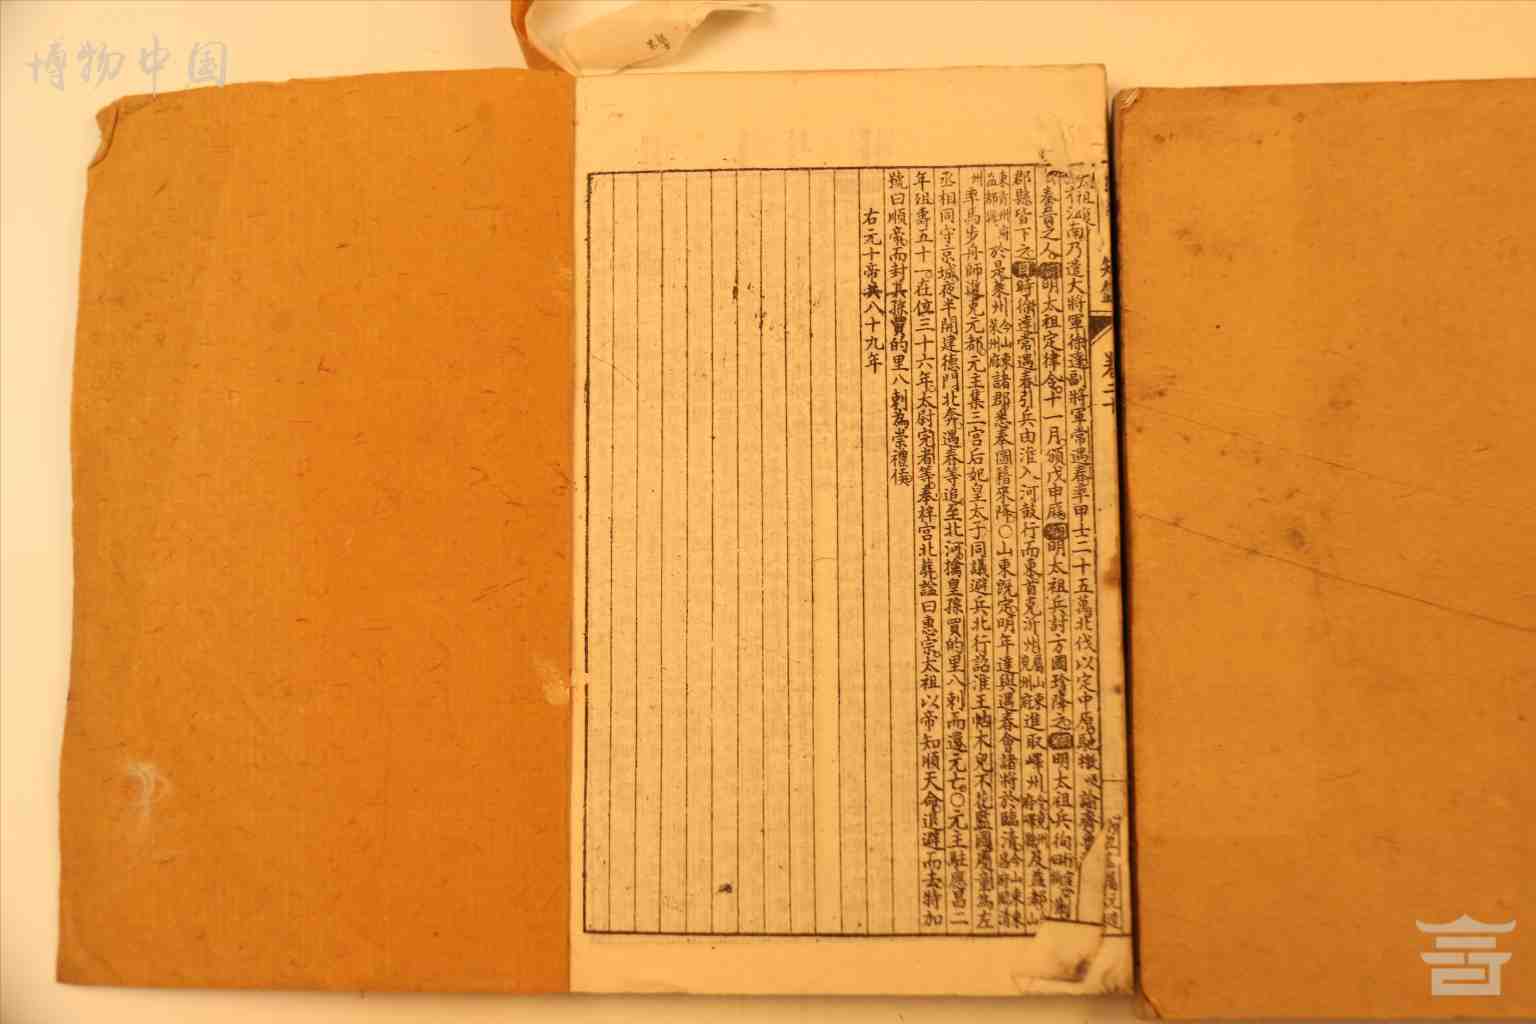 博物中国
卷二十
河南乃遣大將軍徐達副將軍常遇春率甲士二十五萬北伐以定中原馳檄諭齊魯
秦晉之人明太祖定律令十一月頒戊申曆明太祖兵討方國珍降之明太祖兵
郡縣皆下之時徐達常遇春引兵由淮入河鼓行而東首克沂州屬山東兗州府進取嶧州及益都
於是萊州今山東萊州府諸郡悉奉圖籍來降〇山東既定明年達與遇春會諸將於臨清
率馬步舟師進克元都元主集三宮后妃皇太子同議避兵北行詔淮王帖木兒不花監國慶童為左
丞相同守京城夜半開建德門北奔遇春等追至北河擒皇孫買的里八剌而還元亡〇元主駐應昌二
年殂壽五十一在位三十六年太尉完者等奉梓宮北葬諡曰惠宗太祖以帝知順天命退避而去特加
號曰順帝而封其孫買的里八剌為崇禮侯
右元十帝共八十九年